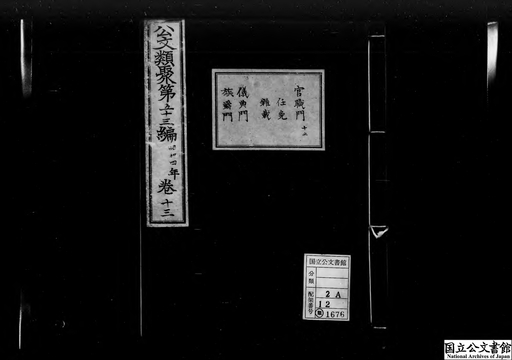 公文類聚第十三編
年
卷十三
官職門
任免
雜載
儀典門
族爵門
国立公文書館
分類
配架番号
2A
12
1676
国立公文書館
National Archives of Japan